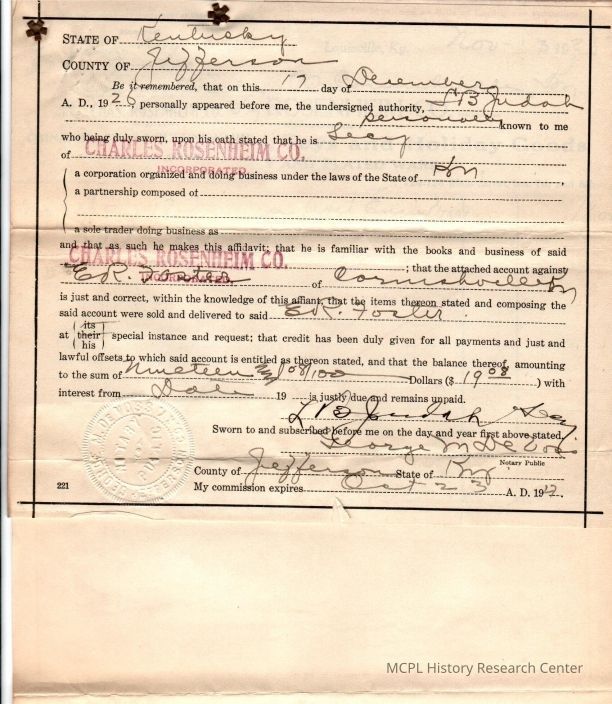 STATE OF Kentucky
COUNTY OF Jefferson
Be it remembered, that on this 17 day of Desember
A. D., 1926, personally appeared before me, the undersigned authority, L B Judah
personally known to me
who being duly sworn, upon his oath stated that he is Secy
of CHARLES ROSENHEIM CO.
INCORPORATED
a corporation organized and doing business under the laws of the State of Ky
a partnership composed of
a sole trader doing business as
and that as such he makes this affidavit; that he is familiar with the books and business of said
CHARLES ROSENHEIM CO. ; that the attached account against
INCORPORATED.
E R. Foster of Cornishville Ky
is just and correct, within the knowledge of this affiant, that the items thereon stated and composing the
said account were sold and delivered to said E R. Foster.
its
at their special instance and request; that credit has been duly given for all payments and just and
his
lawful offsets to which said account is entitled as thereon stated, and that the balance thereof, amounting
to the sum of Nineteen 08/100 Dollars ($ 19 08 ) with
interest from Date 19 is justly due and remains unpaid.
L B Judah Secy
Sworn to and subscribed before me on the day and year first above stated,
George M De
Notary Public
County of Jefferson State of Ky
221
My commission expires Oct 23 A. D. 19
MCPL History Research Center